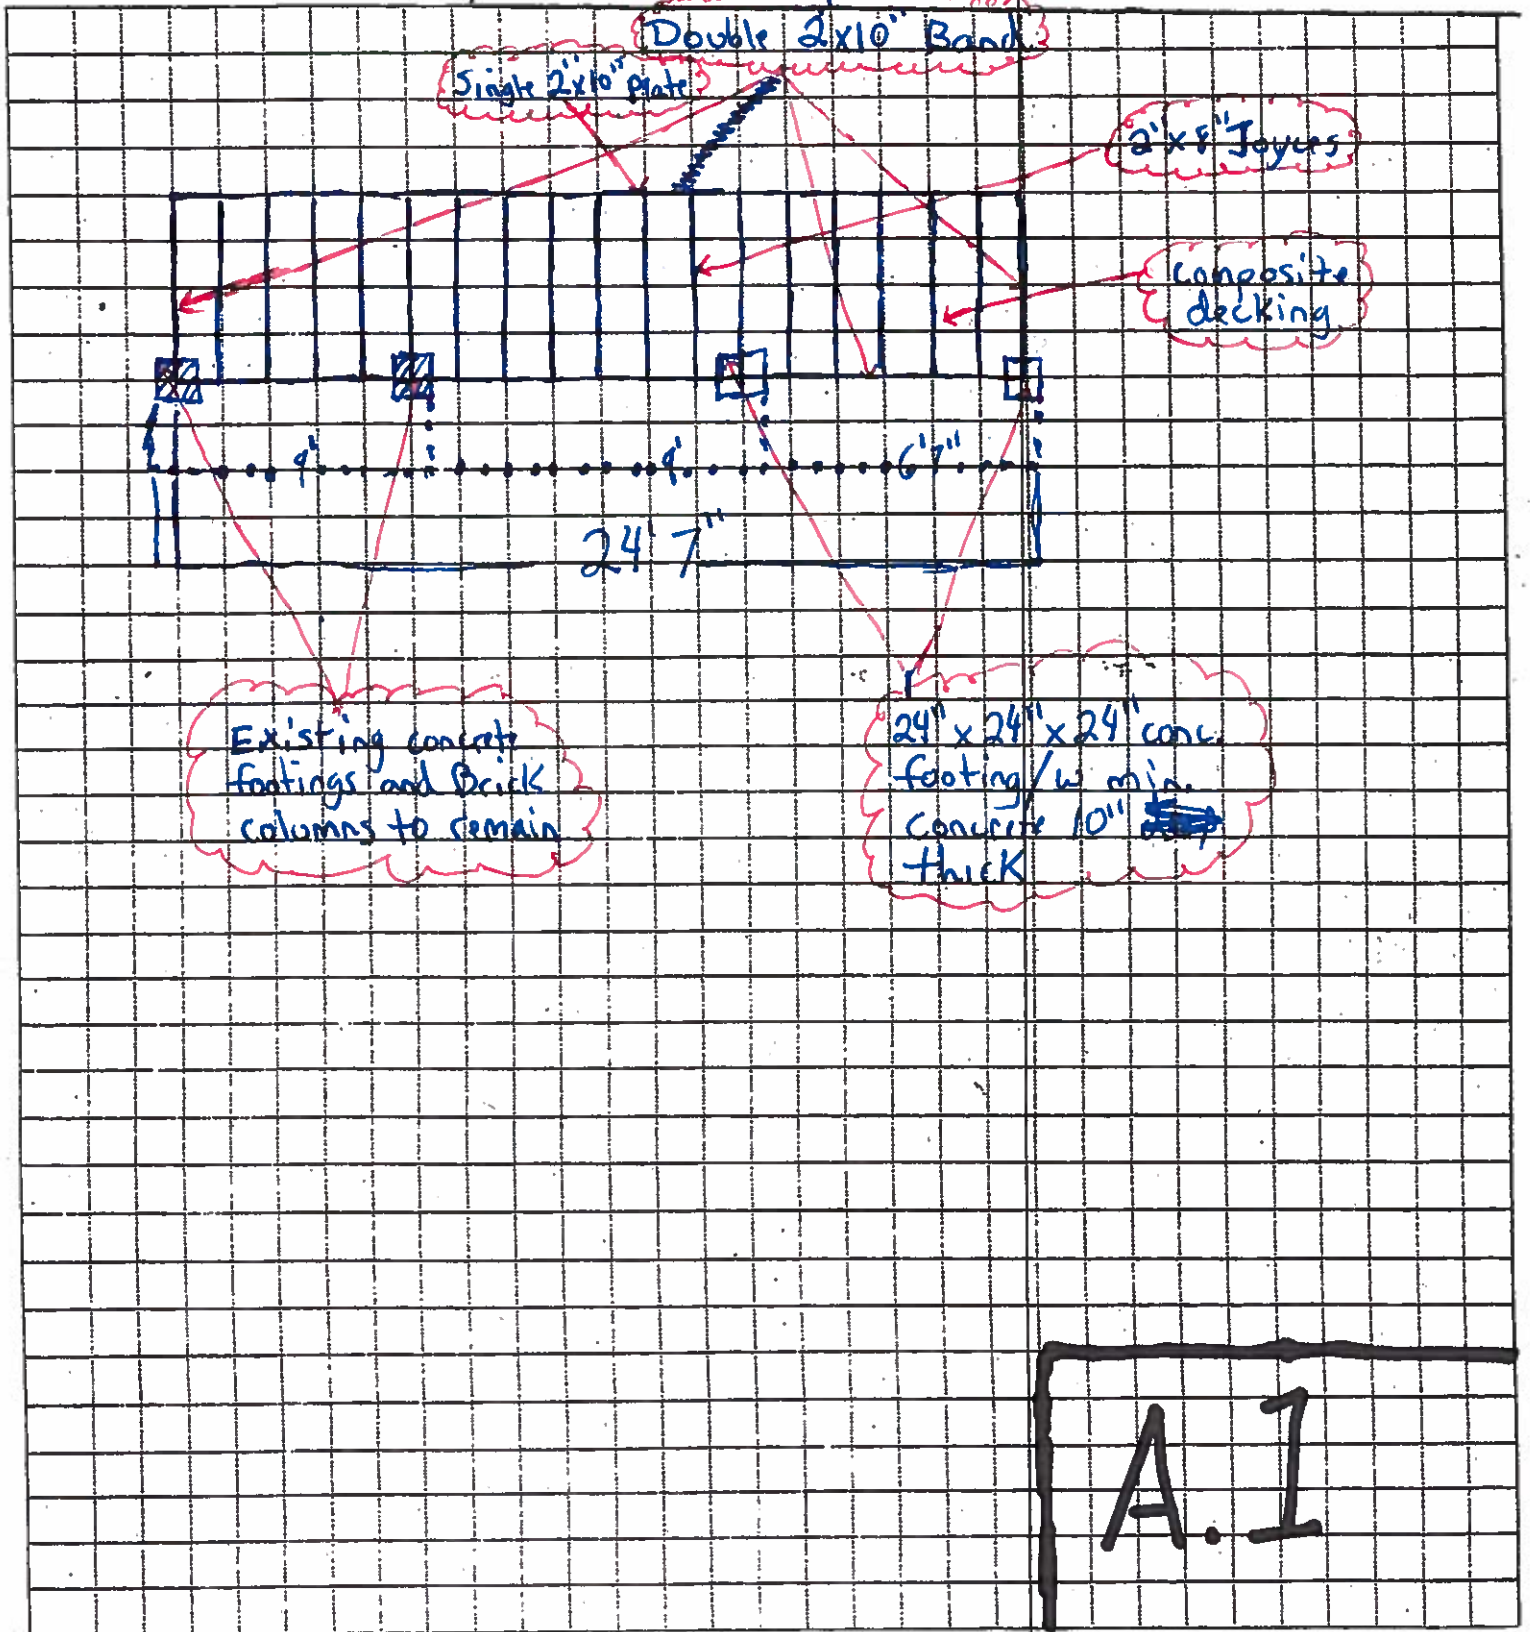 Double 2x10" Band
Single 2"x10" plate
2"x8" Joyces
composite
decking
9'
9'
6'7"
24' 7"
Existing concrete
footings and Brick
columns to remain
24" x 24" x 24" conc.
footing /w min.
concrete 10"
thick
A.1